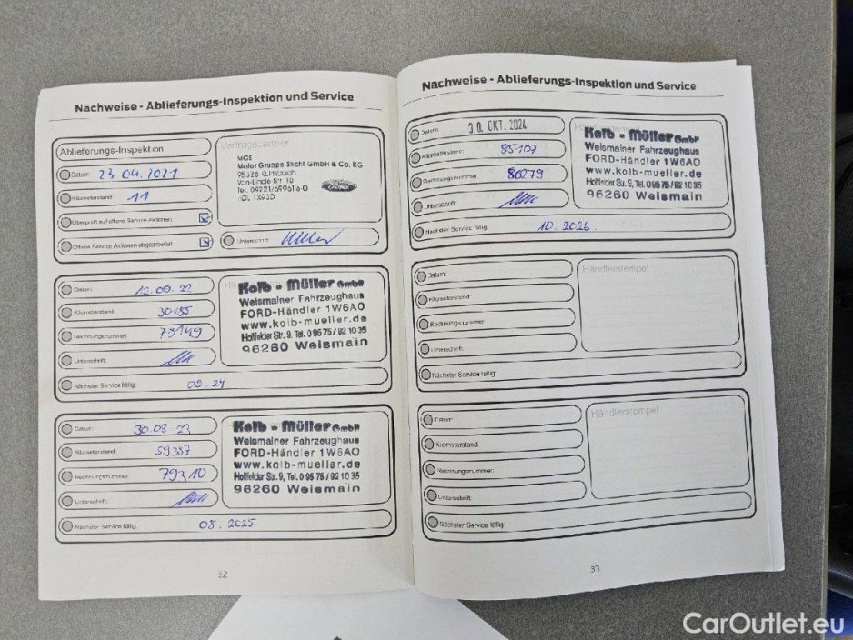 Nachweise - Ablieferungs-Inspektion und Service
Ablieferungs-Inspektion
Datum: 23.04.2021
Kilometerstand: 11
Überprüft auf offene Service Aktionen
Offene Service Aktionen abgearbeitet
Vertragspartner
MGS
Motor Gruppe Sticht GmbH & Co. KG
Von-Linde-Str. 10
Unterschrift:
Datum: 12.09.22
Kilometerstand: 30155
Rechnungsnummer: 73149
Unterschrift:
Nächster Service fällig: 09.24
Kolb - Müller GmbH
Weismainer Fahrzeughaus
FORD-Händler 1W6AO
www.kolb-mueller.de
Hollfelder Str. 9, Tel. 09575/92 10 35
96260 Weismain
Datum: 30.08.23
Kilometerstand: 59387
Rechnungsnummer: 79310
Unterschrift:
Nächster Service fällig: 08.2025
Kolb - Müller GmbH
Weismainer Fahrzeughaus
FORD-Händler 1W6AO
www.kolb-mueller.de
Hollfelder Str. 9, Tel. 09575/92 10 35
96260 Weismain
32
Nachweise - Ablieferungs-Inspektion und Service
Datum: 30. OKT. 2024
Kilometerstand: 85107
Rechnungsnummer: 86279
Unterschrift:
Nächster Service fällig: 10.2026
Kolb - Müller GmbH
Weismainer Fahrzeughaus
FORD-Händler 1W6AO
www.kolb-mueller.de
Hollfelder Str. 9, Tel. 09575/92 10 35
96260 Weismain
Datum:
Kilometerstand:
Rechnungsnummer:
Unterschrift:
Nächster Service fällig:
Händlerstempel
Datum:
Kilometerstand:
Rechnungsnummer:
Unterschrift:
Nächster Service fällig:
Händlerstempel
CarOutlet.eu